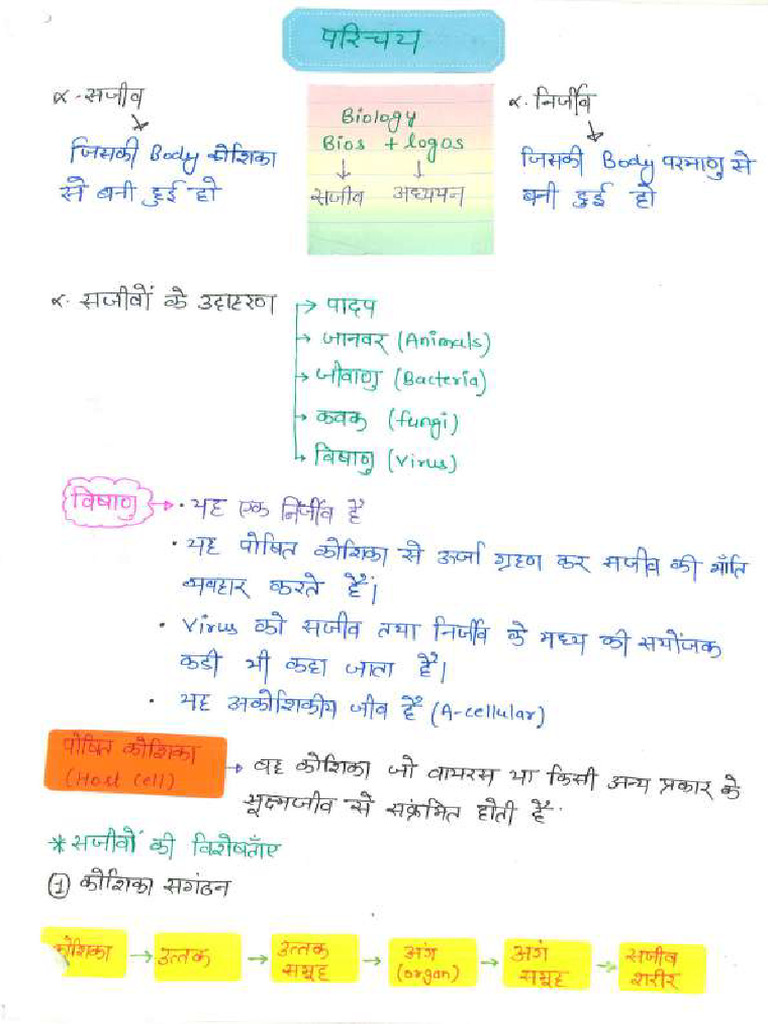 परिचय
α - सजीव
जिसकी Body कोशिका
से बनी हुई हो
Biology
Bios + logos
सजीव अध्ययन
α. निर्जीव
जिसकी Body परमाणु से
बनी हुई हो
α. सजीवों के उदाहरण
पादप
जानवर (Animals)
जीवाणु (Bacteria)
कवक (fungi)
विषाणु (Virus)
विषाणु
• यह एक निर्जीव है
• यह पोषित कोशिका से ऊर्जा ग्रहण कर सजीव की भाँति
व्यवहार करते हैं।
• Virus को सजीव तथा निर्जीव के मध्य की सयोंजक
कडी भी कहा जाता है।
• यह अकोशिकीय जीव है (A-cellular)
पोषित कोशिका
(Host cell)
वह कोशिका जो वायरस या किसी अन्य प्रकार के
सूक्ष्मजीव से संक्रमित होती है.
* सजीवों की विशेषताँए
① कोशिका सगंठन
कोशिका → उत्तक → उत्तक समूह → अंग (organ) → अगं समूह → सजीव शरीर